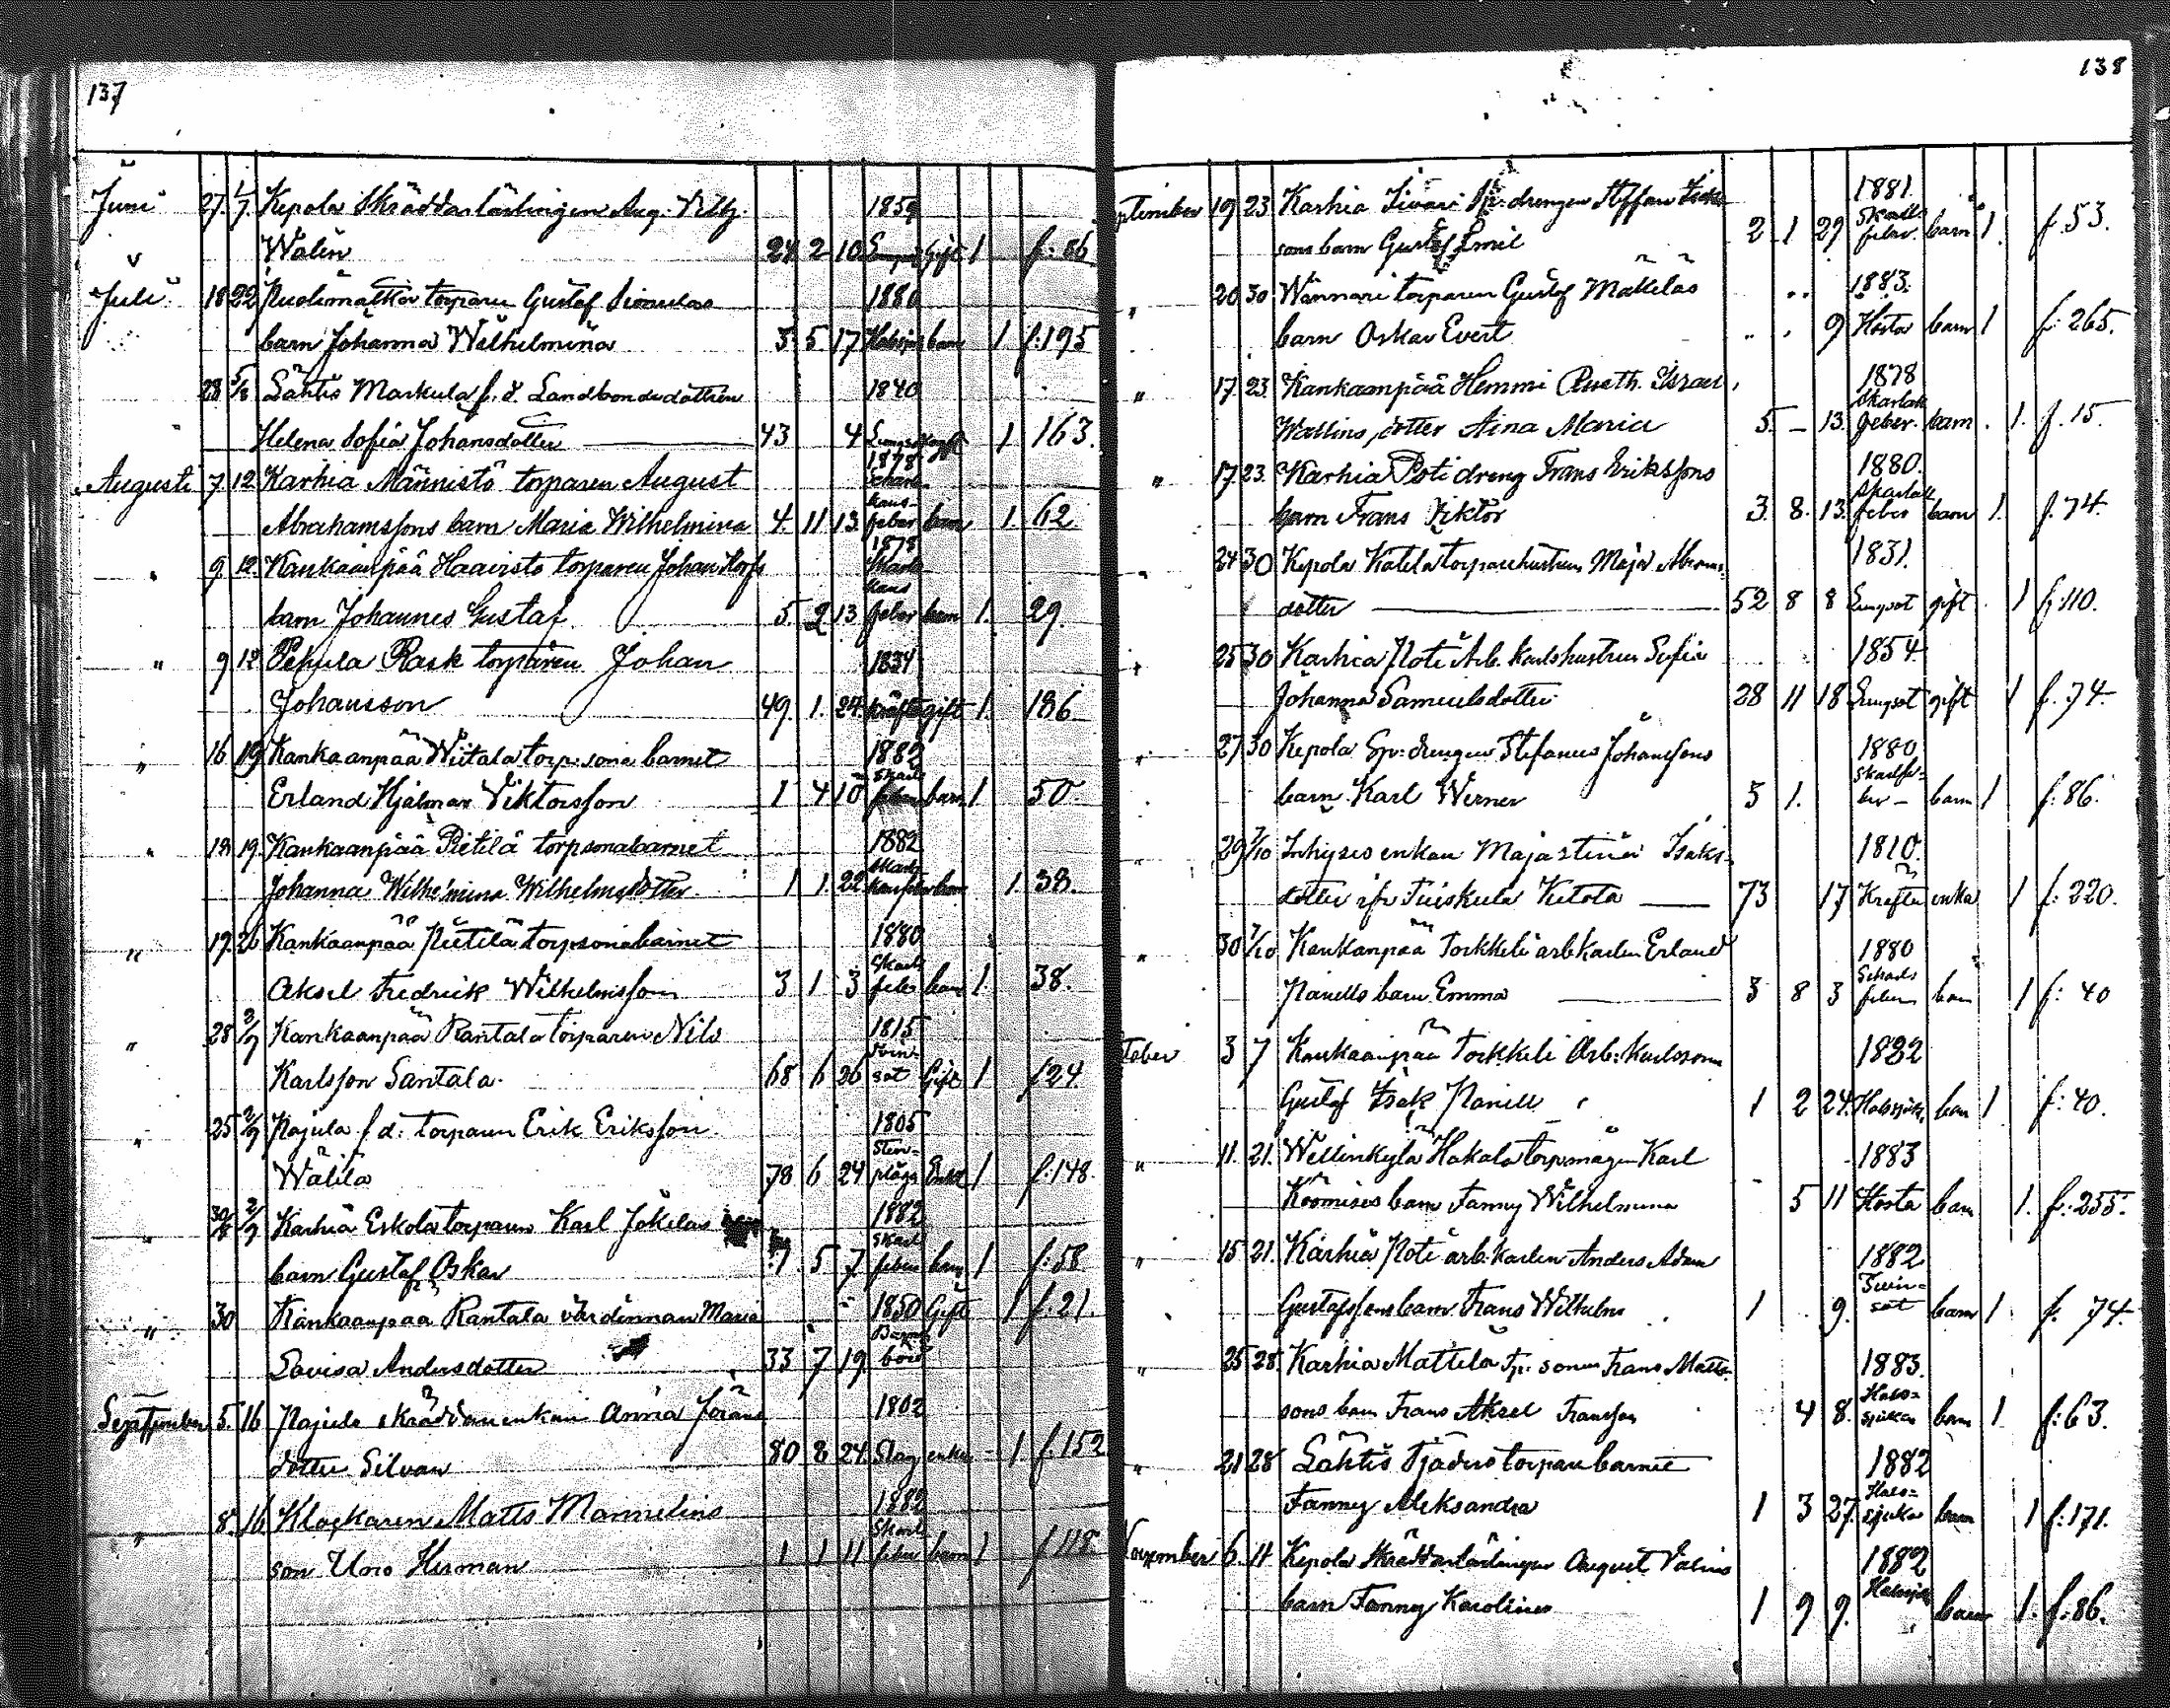 137
Juni 27. 1/7. Kepola Skräddarlärlingen Aug. Vilh. 1859
Walin 24 2 10 Lungsot Gift 1 f: 86
Juli 18 22 torparen Gustaf 1880
barn Johanna Wilhelmina 3 5 17 Halssjuk barn 1 f: 195
28 5/8 Lähtis Markula f. d. Landbondedottren 1840
Helena Sofia Johansdotter 43 4 Lungsot 1 163.
Augusti 7 12 Karhia Männistö torparen August 1878
Abrahamssons barn Maria Wilhelmina 4 11 13 Scharlakansfeber barn 1. 62
" 9 12. Kankaanpää Haavisto torparen Johan 1878
barn Johannes Gustaf. 5. 2 13 Skarlakansfeber barn 1. 29.
" 9 12 Pehula Rask torparen Johan 1834
Johansson 49. 1. 24. kräfta gift 1. 186
" 16 19 Kankaanpää Wiitala torp. sona barnet 1882
Erland Hjalmar Viktorsson 1 4 10 Skarl feber barn 1. 50.
" 18 19. Kankaanpää Pietilä torpsonabarnet 1882
Johanna Wilhelmina Wilhelmsdotter 1 1. 22 Skarlakansfeber barn 1. 38.
" 19. 26 Kankaanpää Pietilä torpsonabarnet 1880
Aksel Fredrik Wilhelmsson 3 1 3 Skarl feber barn 1. 38.
" 28 2/9 Kankaanpää Rantala torparen Nils 1815
Karlsson Santala. 68 6 26 sot Gift 1 f 24.
" 25 2/9 Pajula f d: torparen Erik Eriksson 1805
Wälilä 78 6 24 Stenplåga Enkl 1 f: 148.
" 30/8 2/9 Karhia Eskola torparen Karl Jokelas 1882
barn Gustaf Oskar 1 5 7 Skarl feber barn 1 f: 58
" 30 Kankaanpää Rantala värdinnan Maria 1850 Gift 1 f: 21.
Lovisa Andersdotter 33 7 19. Barnbörd
September 5. 16 Pajula skräddarenkan Anna Jörans 1802
dotter Silvan 80 8 24. Slag enka 1. f: 152
" 8. 16 Klockaren Matts Mannelins 1882
son Uno Herman 1 1 11 Skarl feber barn 1 f 118.
138
ptember 19 23. Karhia Sivari Sp: drengen Steffan Isaks 1881.
sons barn Gustaf Emil 2 1 29 Skarl feber. barn 1. f. 53.
" 20 30 Wännäri torparen Gustaf Mäkeläs 1883.
barn Oskar Evert 9 Hosta barn 1 f: 265.
" 17. 23. Kankaanpää Hemmi Rusth. Israel 1878
Wallins dotter Aina Maria 5. – 13. Skarlak feber. barn. 1. f. 15.
" 17. 23. Karhia Poti dreng Frans Erikssons 1880.
barn Frans Viktor 3. 8. 13. Skarlak feber barn 1. f. 74.
" 24 30 Kepola Katila torparehustrun Maja Abrams 1831.
dotter 52 8 8 Lungsot gift 1 f: 110.
" 25 30 Karhia Poti Arb. karlshustrun Sofia 1854.
Johanna Samuelsdotter 28 11 18 Lungsot gift 1 f. 74.
" 27 30 Kepola Sp: drengen Stefanus Johanssons 1880.
barn Karl Werner 3 1. Skarlfeber – barn 1 f: 86.
" 29 7/10 Inhyses enkan Maja Stina Isaks 1810.
dotter ifr. Tuiskula Ketola 73 17 Kräfta enka 1 f: 220.
" 30 7/10 Kankanpää Torkkeli arbkarlen Erland 1880
Panells barn Emma 3 8 3 Scharls feber barn 1 f: 40
tober 3 7 Kankaanpää Torkkeli Arb: karlsson 1882
Gustaf Isak Panell 1 2 24. Halssjuk. barn 1 f: 40.
" 11. 21. Wellinkylä Hakala torpmågen Karl 1883
barn Fanny Wilhelmina 5 11 Hosta barn 1. f: 255.
" 15 21. Karhia Poti arb. karlen Anders Adam 1882
Gustafssons barn Frans Wilhelm 1 9. sot barn 1. f. 74.
" 25 28. Karhia Mattila Tp. sonen Frans Matts 1883.
sons barn Frans Aksel Fransson 4 8. Halssjuka barn 1. f: 63.
" 21 28 Lähtis Tjäders torpare barnet 1882
Fanny Aleksandra 1 3 27. Halssjuka barn 1 f: 171.
November 6. 11 Kepola Skräddarlärlingen August Valins 1882
barn Fanny Karolina 1 9 9. Halssjuk barn 1. f: 86.